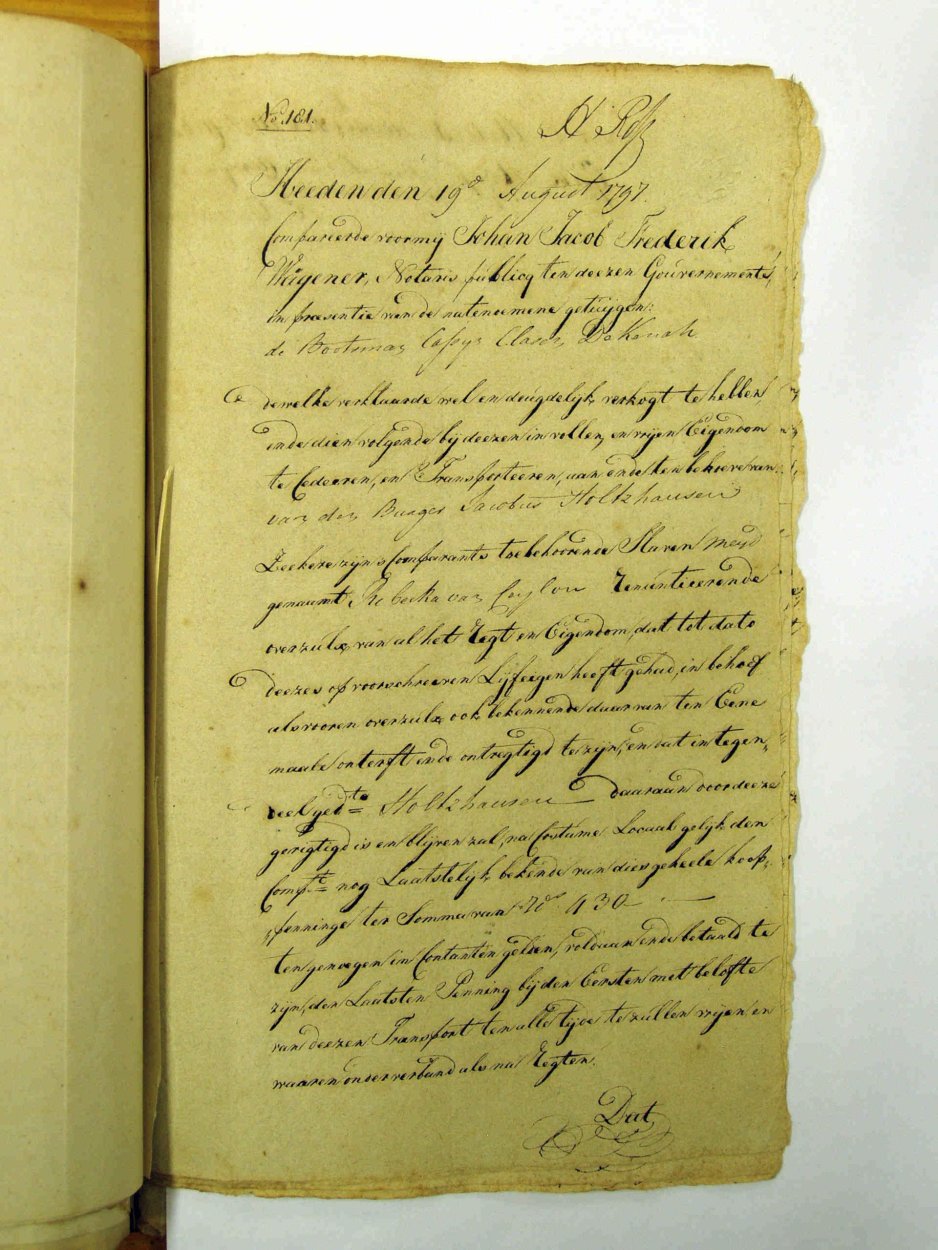 No. 181.
Heeden den 19e August 1797.
Compareerde voor mij Johan Jacob Frederik
Wegener, Notaris publicq ten deezen Gouvernemente,
in præsentie van de natenoemene getuijgen:
de Bootsman
dewelke verklaarde wel en deugdelijk verkogt te hebben,
in de dien volgende bij deezen in vollen, en vrijen Eigendom
te Cedeeren, en Transporteeren, aan ende ten behoeve van
van den Burger Jacobus Holtzhausen
Zeekere zijn Comparants toebehoorende Slaven meyd
genaamt Rebecka van Ceylon Renuntieerende
overzulx van al het Regt en Eigendom, dat tot dato
deezes op voorschreeven Lijfeegen heeft gehad, in behoef
als vooren overzulx ook bekennende daar van ten Eene
maale onterft ende ontregtigd te zijn, en dat in tegen,
deel gedte Holtzhausen daaraan door deeze
geregtigd is en blijven zal, na Costume Locaal gelijk den
Compt nog Laatstelijk bekende van dies geheele koop,
penninge ter Somma van Rds 430
ten genoegen in Contanten gelden, voldaan ende betaald te
zijn, den Laatsten Penning bij den Eersten met belofte
van deezen Transport ten alle tijde te zullen vrijen en
waaren onder verband als na Regten.
Dat